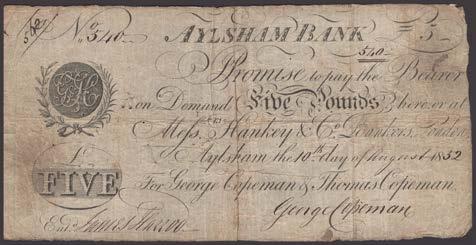 540 No. 540 AYLSHAM BANK £ 5
540
I Promise to pay the Bearer
on Demand Five Pounds here or at
Messrs. Hankey & Co. Bankers, London
Aylsham the 10th day of August 1852
For George Copeman & Thomas Copeman
£ FIVE
George Copeman
Entd.